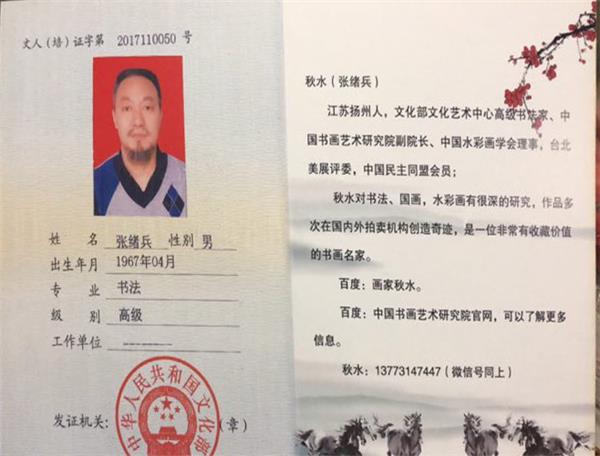 文人（培）证字第 2017110050 号
姓 名 张绪兵 性别 男
出生年月 1967年04月
专 业 书法
级 别 高级
工作单位 ————
中华人民共和国文化部
发证机关： （章）
秋水（张绪兵）
江苏扬州人，文化部文化艺术中心高级书法家、中
国书画艺术研究院副院长、中国水彩画学会理事，台北
美展评委，中国民主同盟会员；
秋水对书法、国画，水彩画有很深的研究，作品多
次在国内外拍卖机构创造奇迹，是一位非常有收藏价值
的书画名家。
百度：画家秋水。
百度：中国书画艺术研究院官网，可以了解更多
信息。
秋水：13773147447（微信号同上）